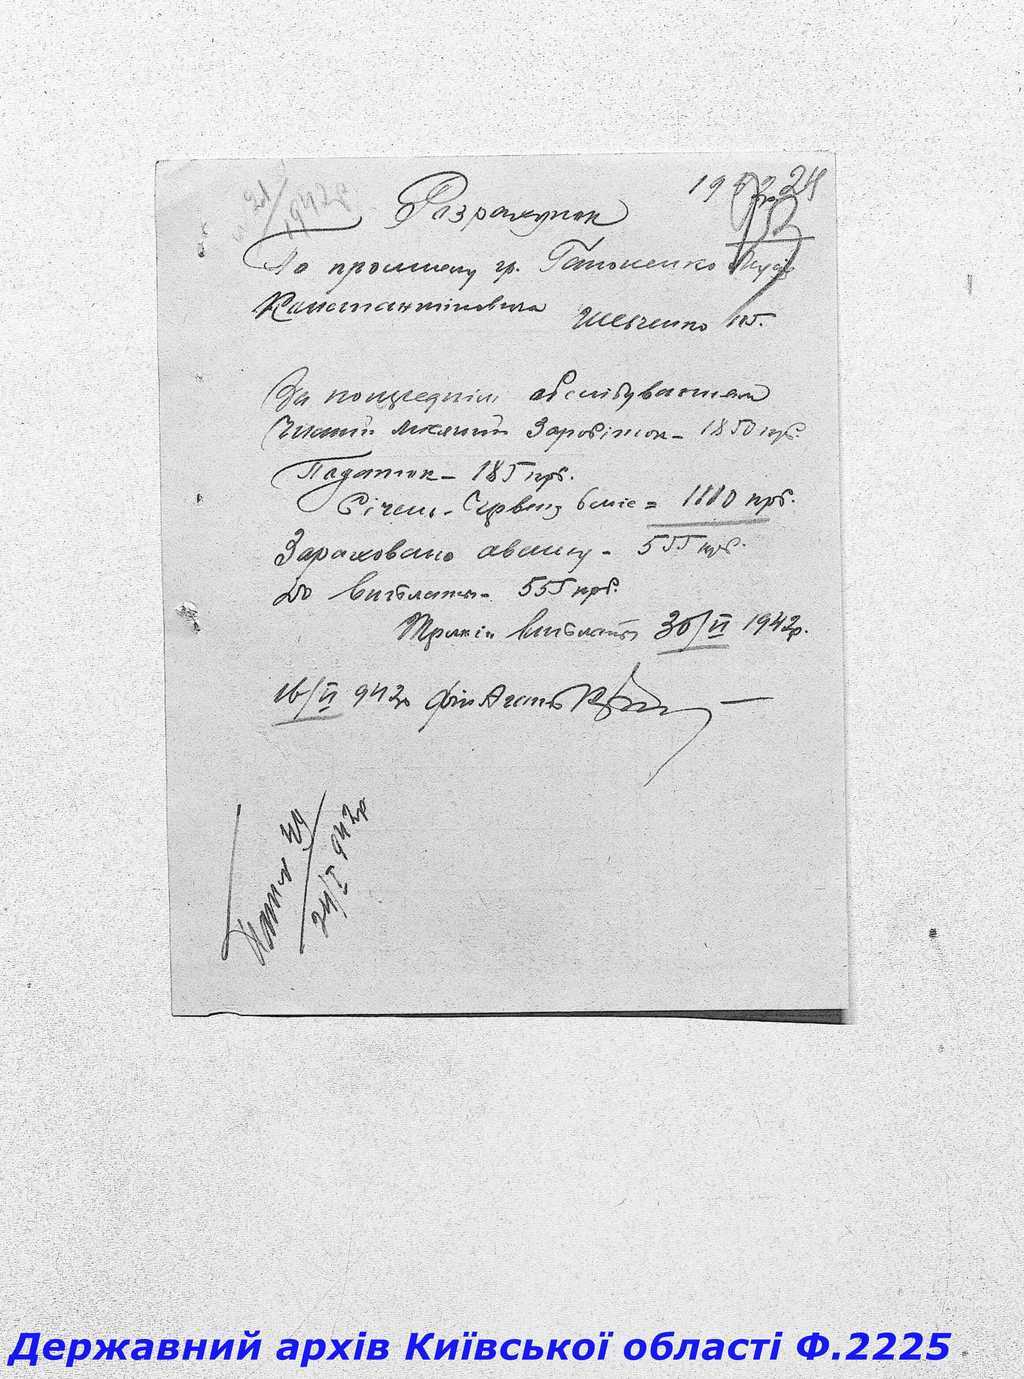 21/
1942р
24
53
Розрахунок
По промислу гр. Гапоненко
Константиновича Шевченко 115.
За попереднім обслідуванням
Чистий місячний Заробіток - 1850 крб.
Податок - 185 крб.
Січень - Червень 6 міс = 1110 крб.
Зараховано авансу - 555 крб.
До виплати - 555 крб.
Термін виплати 30/VI 1942р.
16/VI 942р фін Агент
24/ 942р
Державний архів Київської області Ф.2225